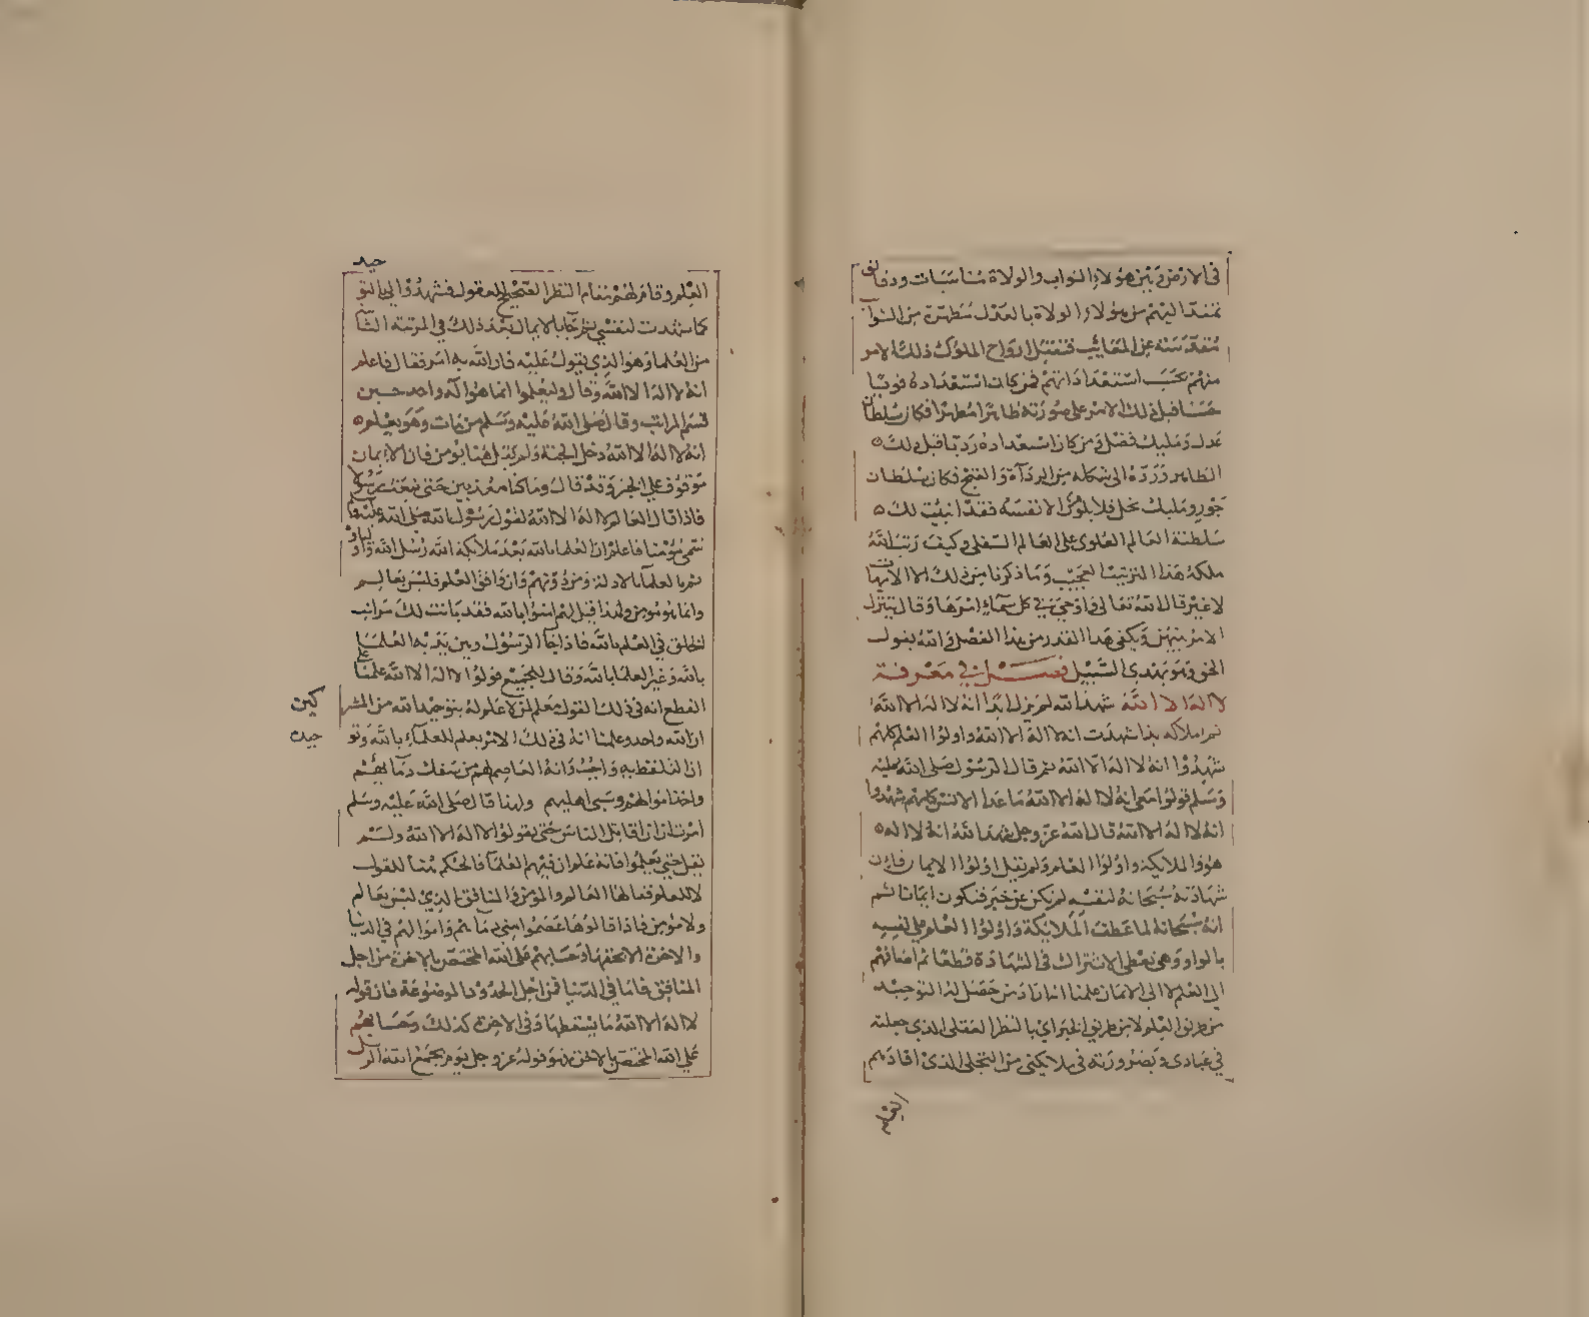 في الارض وبين هولاء النواب والولاة مناسبات ودقائق
تمتد اليهم من هولاء الولاة بالعدل مطهرة من الشوائب
مقدسة عن المعايب فتقبل ارواح الملوك ذلك الامر
منهم بحسب استعداداتهم فمن كان استعداده قويا
حسنا قبل ذلك الامر على صورته طاهرا مطهرا فكان سلطان
عدل ومليك فضل ومن كان استعداده رديا قبل ذلك
الطاهر ورده الى شكله من الرداة والقبح فكان سلطان
جور ومليك بخل فلا يلومن الا نفسه فقد ابنت لك
سلطنة العالم العلوي على العالم السفلي وكيف رتب الله
ملكه هذا الترتيب العجيب وما ذكرنا من ذلك الا الامهات
لا غير قال الله تعالى فاوحى في كل سماء امرها وقال يتنزل
الامر بينهن ويكفي هذا القدر من هذا الفصل والله يقول
الحق وهو يهدي السبيل فصل في معرفة
لا اله الا الله شهد الله لم يزل ابدا انه لا اله الا الله
ثم املاكه بذا شهدت انه لا اله الا الله واولوا العلم كلهم
شهدوا انه لا اله الا الله ثم قال الرسول صلى الله عليه
وسلم قولوا معي انه لا اله الا الله ما عدا الانس كلهم شهدوا
انه لا اله الا الله قال الله عز وجل شهد الله انه لا اله
هو والملايكة واولوا العلم ولم يقل اولوا الايمان فان
شهادته سبحانه لنفسه لم يكن عن خبر فتكون ايمانا ثم
انه سبحانه لما عطف الملايكة واولوا العلم على نفسه
بالواو وهي تعطى الاشتراك في الشهادة قطعا ثم اضافهم
الى العلم لا الى الايمان علمنا انه اراد من حصل له التوحيد
من طريق العلم لا من طريق الخبر اي بالنظر العقلي الذي جعلته
في عبادي وبضرورته في ملايكتي من التجلي الذي افادهم
العلم
العلم وقام لهم مقام النظر الصحيح العقول فشهدوا لي بالتو
حيد
كما شهدت لنفسي ثم جا بالايمان بعد ذلك في المرتبة الثا
من العلما وهو الذي يقول عليه فان الله به امر فقال فاعلم
انه لا اله الا الله وقال وليعلموا انما هو اله واحد حين
قسم المراتب وقال صلى الله عليه وسلم من مات وهو يعلم
انه لا اله الا الله دخل الجنة ولم يقل هنا يؤمن فان الايمان
موقوف على الخبر وقد قال وما كنا معذبين حتى نبعث رسولا
فاذا قال العالم لا اله الا الله لقول رسول الله صلى الله عليه
سمي مؤمنا فاعلم ان العلما بالله بعد ملايكة الله رسل الله واولياؤه
ثم العلما بالادلة ومن دونهم وان وافق العلم فليس بعالم
وانما هو مؤمن ولهذا قيل لهم امنوا بالله فقد بانت لك مراتب
الخلق في العلم بالله فاذا جا الرسول وبين يديه العلما
بالله وغير العلما بالله وقال للجميع قولوا لا اله الا الله علمنا على
القطع انه في ذلك القول معلم لمن لا علم له بتوحيد الله من المشر
كين
ان الله واحد وعلمنا انه في ذلك الامر معلم للعلماء بالله وتو
حيده
ان التلفظ به واجب وانه العاصم لهم من سفك دمايهم
واخذ اموالهم وسبي اهليهم ولهذا قال صلى الله عليه وسلم
امرت ان اقاتل الناس حتى يقولوا لا اله الا الله ولم
يقل حتى يعلموا فانه علم ان فيهم العلما فالحكم هنا للقول
لا للعلم فقالها العالم والمؤمن والمنافق الذي ليس بعالم
ولا مؤمن فاذا قالوها عصموا مني دماهم واموالهم في الدنيا
والاخرة الا بحقها وحسابهم على الله المختص بالاخرة من اجل
المنافق فاما في الدنيا فمن اجل الحدود الموضوعة فان قوله
لا اله الا الله ما يسقطها وفي الاخرة كذلك وحسابهم
على الله المختص بالاخرة فهو قوله عز وجل يوم يجمع الله الرسل